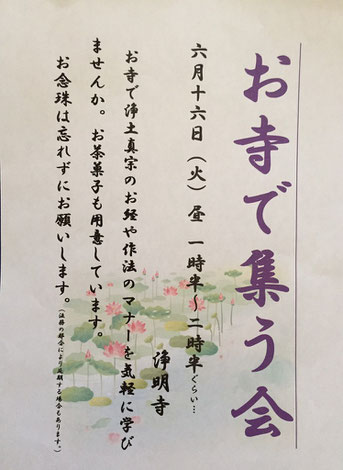 お寺で集う会
六月十六日（火）昼 一時半～二時半ぐらい…
浄明寺
お寺で浄土真宗のお経や作法のマナーを気軽に学び
ませんか。お茶菓子も用意しています。
お念珠は忘れずにお願いします。（法務の都合により延期する場合もあります。）